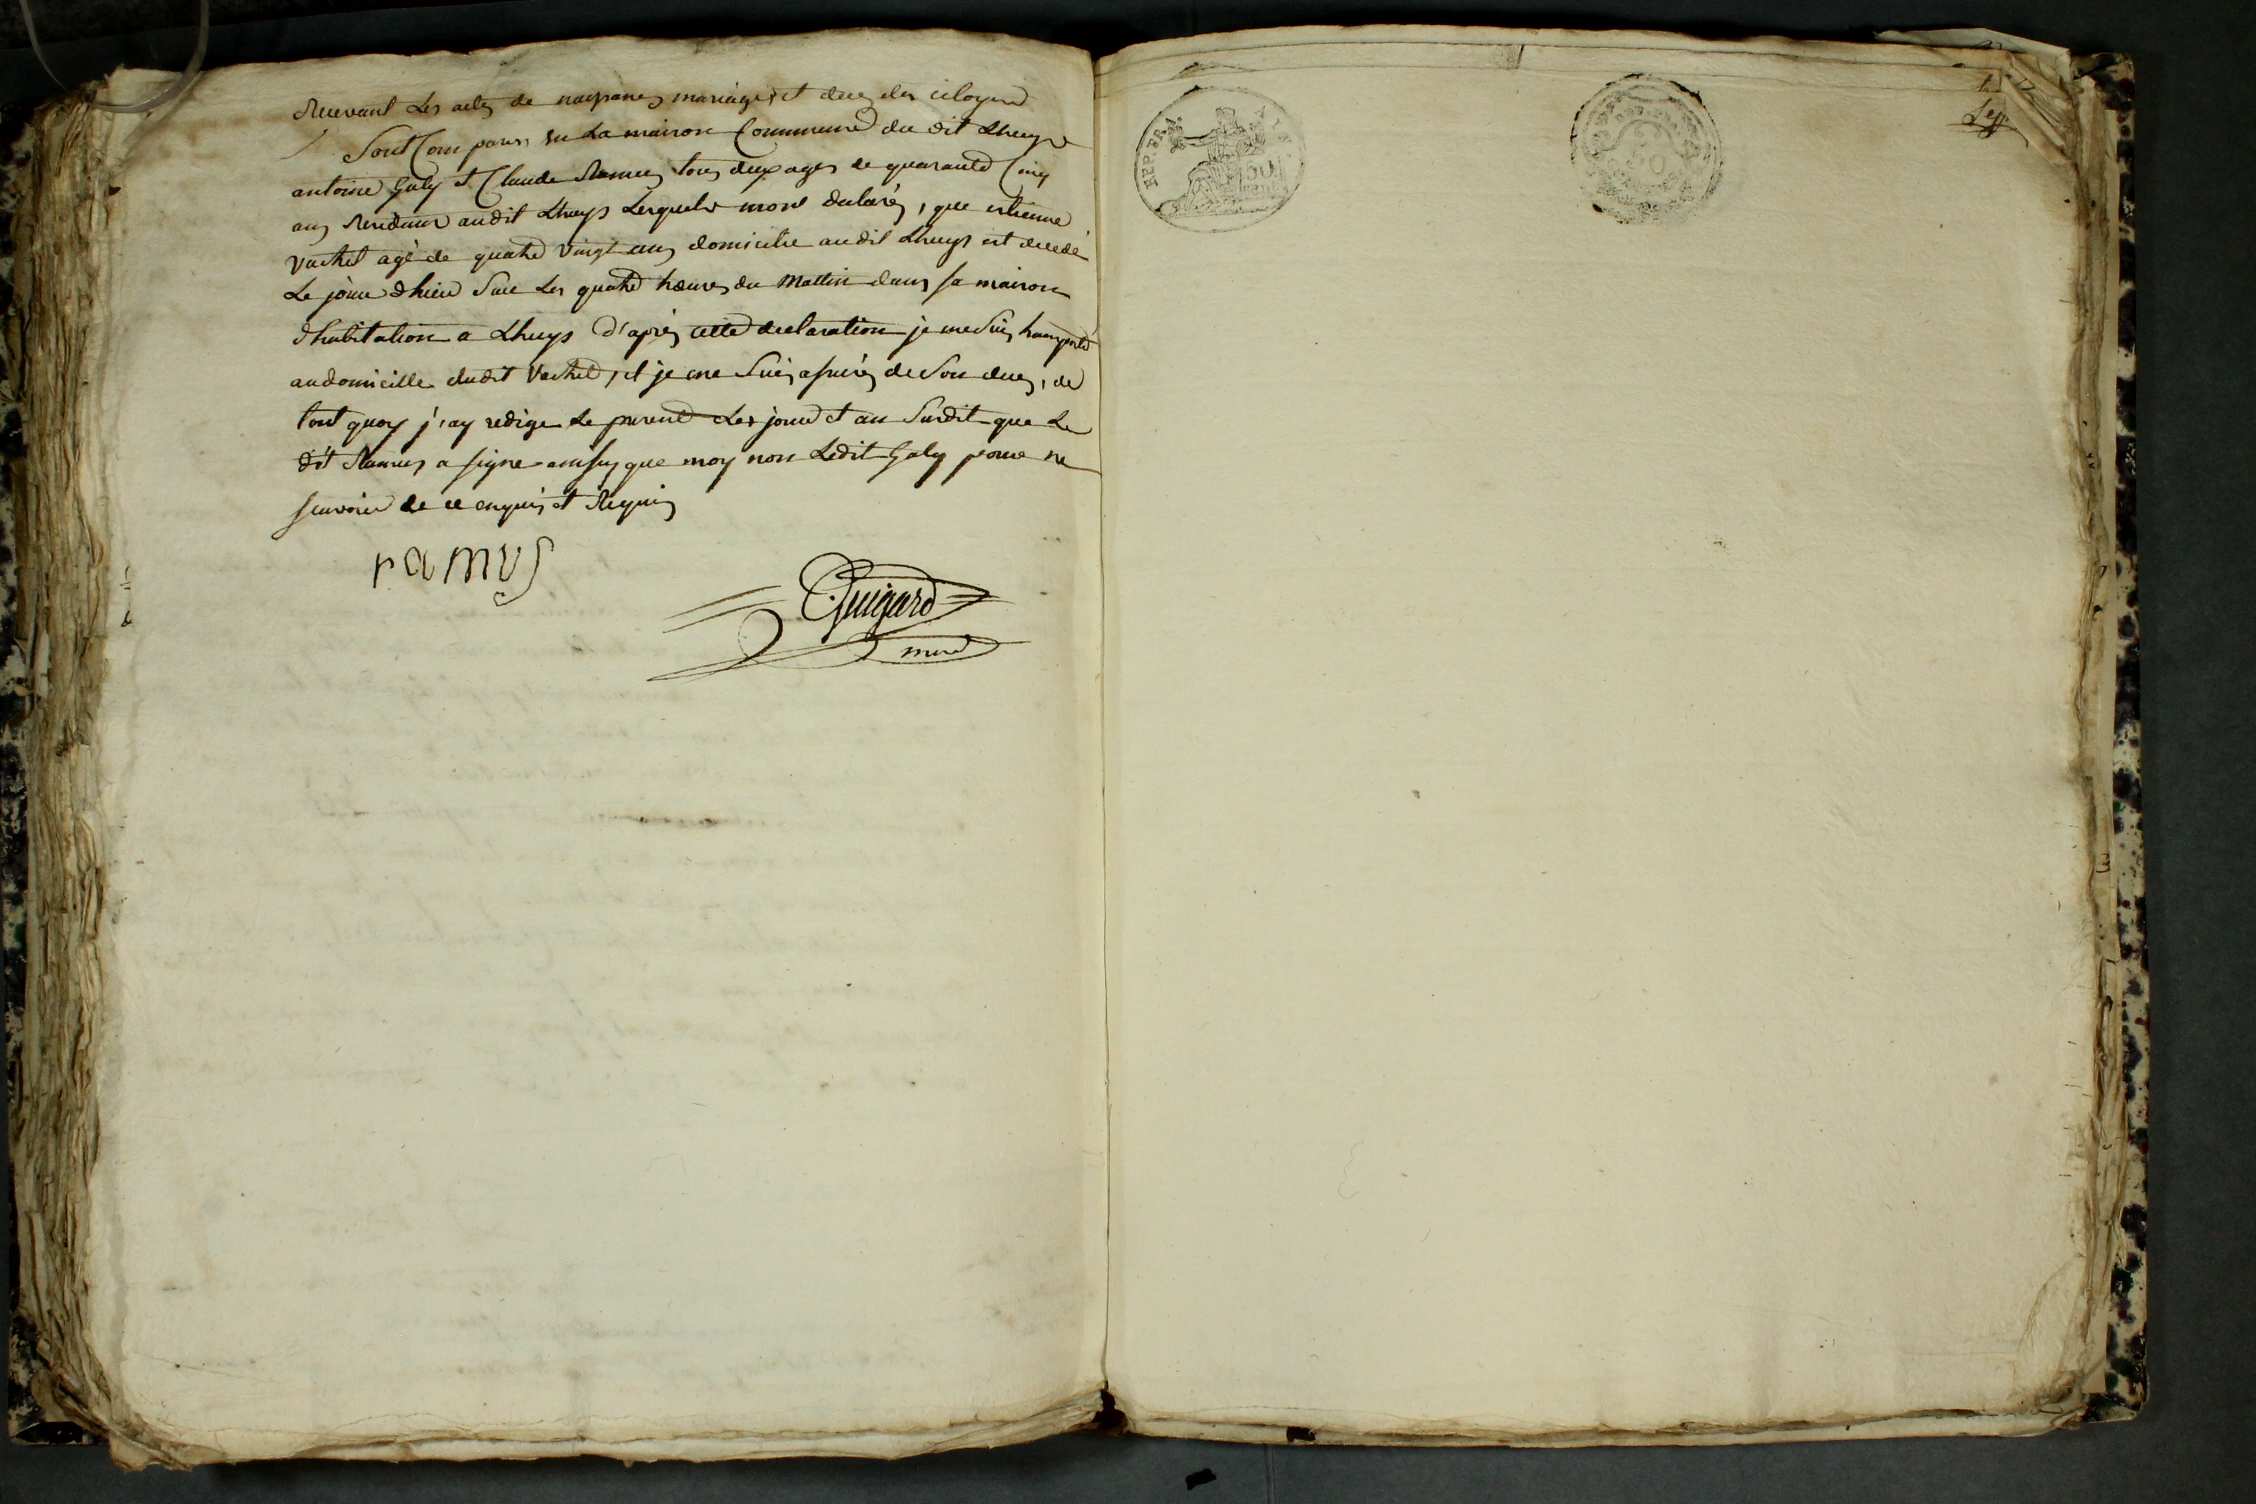 Recevant les actes de naissances mariages et deces des citoyens
Sont Comparus en La maison Commune du dit Lhuys
antoine Galy et Claude Ramus tous deux ages de quarante Cinq
ans Residans audit Lhuys Lesquels mont declarés, que estienne
Vachet agé de quatre vingt ans domicilie audit Lhuys est decedé
Le jour dhier Sur Les quatre heures du Mattin dans sa maison
dhabitation a Lhuys d'après cette declaration je me Suis transporté
au domicille dudit Vachet, et je me Suis assurés de Son deces, de
tout quoy j'ay redige Le present Les jour et an Susdit que Le
dit Ramus a signe ainsy que moy non Ledit Galy pour ne
scavoir de ce enquis et Requis
ramus
Guigard
maire
REP. FRA.
50
50